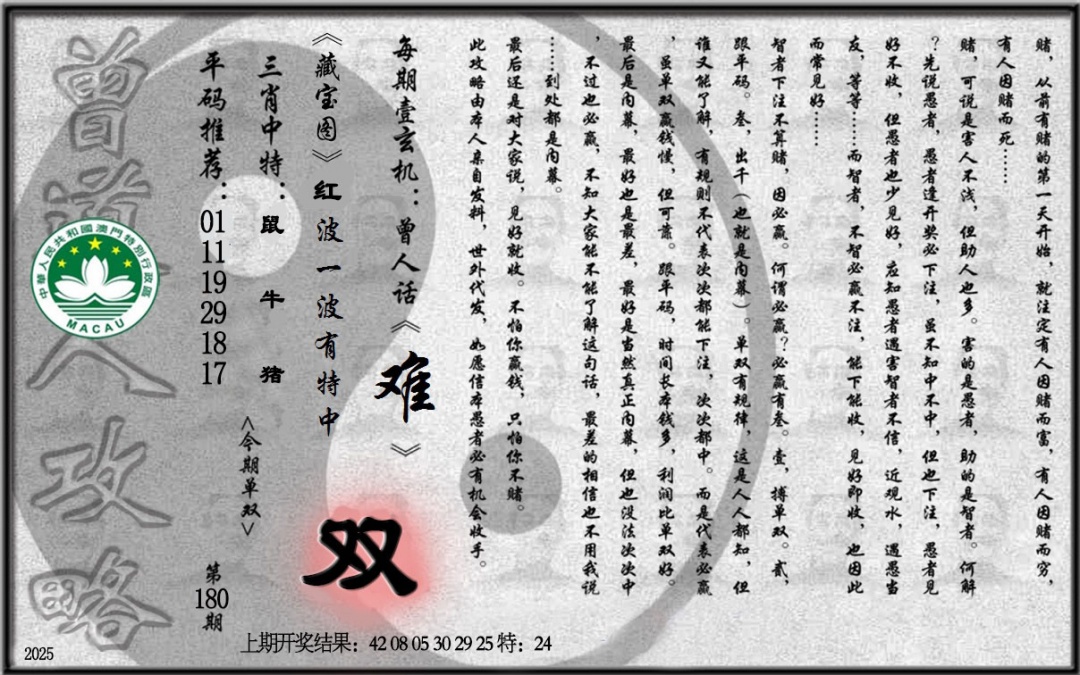 赌，从前有赌的第一天开始，就注定有人因赌而富，有人因赌而穷，
有人因赌而死……
赌，可说是害人不浅，但助人也多。害的是愚者，助的是智者。何解
？先说愚者，愚者逢开奖必下注，虽不知中不中，但也下注，愚者见
好不收，但愚者也少见好，应知愚者遇害智者不信，近观水，遇愚当
友，等等……而智者，不智必赢不注，能下能收，见好即收，也因此
而常见好……
智者下注不算赌，因必赢。何谓必赢？必赢有叁。壹，搏单双。贰，
跟平码。叁，出千（也就是内幕）。单双有规律，这是人人都知，但
谁又能了解，有规则不代表次次都能下注，次次都中。而是代表必赢
，虽单双赢钱慢，但可靠。跟平码，时间长本钱多，利润比单双好。
最后是内幕，最好也是最差，最好是当然真正内幕，但也没法次次中
，不过也必赢，不知大家能不能了解这句话，最差的相信也不用我说
……到处都是内幕。
最后还是对大家说，见好就收。不怕你赢钱，只怕你不赌。
此攻略由本人亲自发料，世外代发，如愿信本愚者必有机会收手。
每期壹玄机：曾人话《难》
《藏宝图》红波一波有特中
三肖中特：鼠 牛 猪
平码推荐：01 11 19 29 18 17
<今期单双>
双
第180期
曾道人攻略
中華人民共和國澳門特別行政區
MACAU
上期开奖结果：42 08 05 30 29 25 特：24
2025